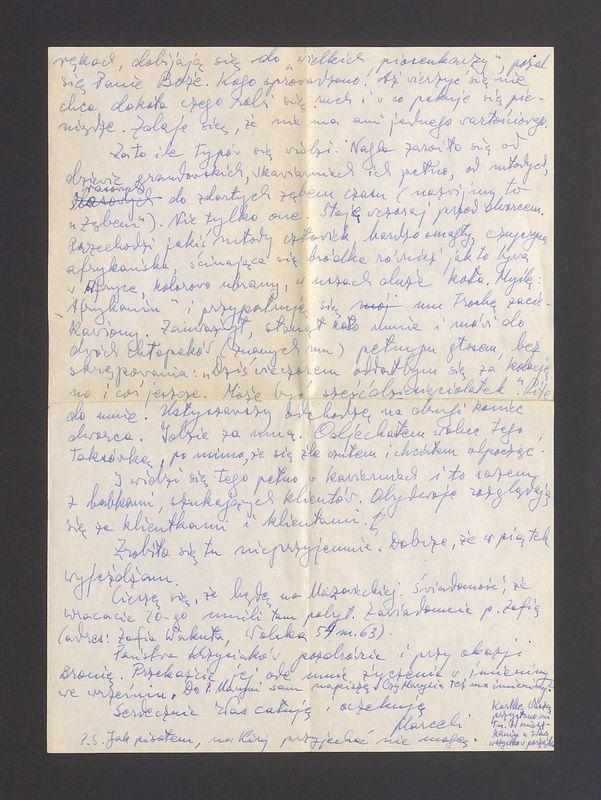 rękach, dobijają się do "wielkich piosenkarzy", pożal
się Panie Boże. Kogo sprowadzono! Aż wierzyć się nie
chce dokoła czego robi się ruch i w co pakuje się pie-
niądze. Zdaje się, że nie ma ani jednego wartościowego.
Za to ile typów się widzi. Nagle zaroiło się od
dziwić grandowskich, w kawiarniach ich pełno, od młodych,
rasowych do zdartych zębem czasu (nazwijmy to
"zębem"). Nie tylko one. Stoję wczoraj przed dworcem.
Przechodzi jakiś młody człowiek bardzo smagły, czupryna
afrykańska, ścinająca się bródka również, jak to bywa
w Afryce, kolorowo ubrany, w uszach duże koła. Myślę:
"Afrykanin" i przypatruję się mu trochę zacie-
kawiony. Zauważył, stanął koło mnie i mówi do
dwóch chłopaków (znanych mu) pełnym głosem, bez
skrępowania: "dziś wieczorem oddałbym się za kolację
no i coś jeszcze. Może być sześćdziesięciolatek". Pije
do mnie. Usłyszawszy odchodzę na drugi koniec
dworca. Idzie za mną. Odjechałem wobec tego
taksówką, pomimo, że się źle czułem i chciałem odpocząć.
I widzi się tego pełno w kawiarniach i to razem
z babkami, szukających klientów. Obydwoje rozglądają
się za klientkami i klientami.
Zrobiło się tu nieprzyjemnie. Dobrze, że w piątek
wyjeżdżam.
Cieszę się, że będę na Mazowieckiej. Świadomość, że
wracacie 20-go umili tam pobyt. Zawiadomcie p. Zofię
(adres: Zofia Wakuła, Wolska 54 m. 63).
Państwa Krzysiaków pozdrówcie i przy okazji
Bronię. Przekażcie jej ode mnie życzenia w imieniny
we wrześniu. Do P. Maryni sam napiszę. Czy Marysia też ma imieniny?
Serdecznie Was całuję i oczekuję
Marceli
P.S. Jak pisałem, na Kiry przyjechać nie mogę.
Kartkę Waszą
przysłano mi
tu. W miesz-
kaniu u Was
wszystko w porządku